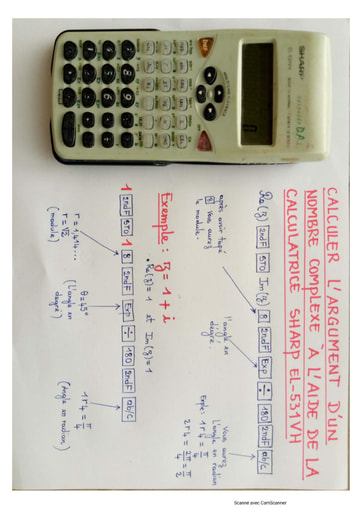 CALCULER L'ARGUMENT D'UN
NOMBRE COMPLEXE A L'AIDE DE LA
CALCULATRICE SHARP EL-531VH
Re(z) 2ndF STO Im(z) 8 2ndF EXP ÷ 180 2ndF ab/c
après avoir tapé
8 Vous aurez
le module.
l'angle en
degré.
Vous aurez
l'angle en radian
Exple: 1r4 = π/4
2r4 = 2π/4 = π/2
Exemple: z = 1 + i
Re(z) = 1 et Im(z) = 1
1 2ndF STO 1 8 2ndF EXP ÷ 180 2ndF ab/c
r = 1,414...
r = √2
(module)
θ = 45°
(l'angle en
degré)
1r4 = π/4
(Angle en radian)
SHARP
Scanné avec CamScanner